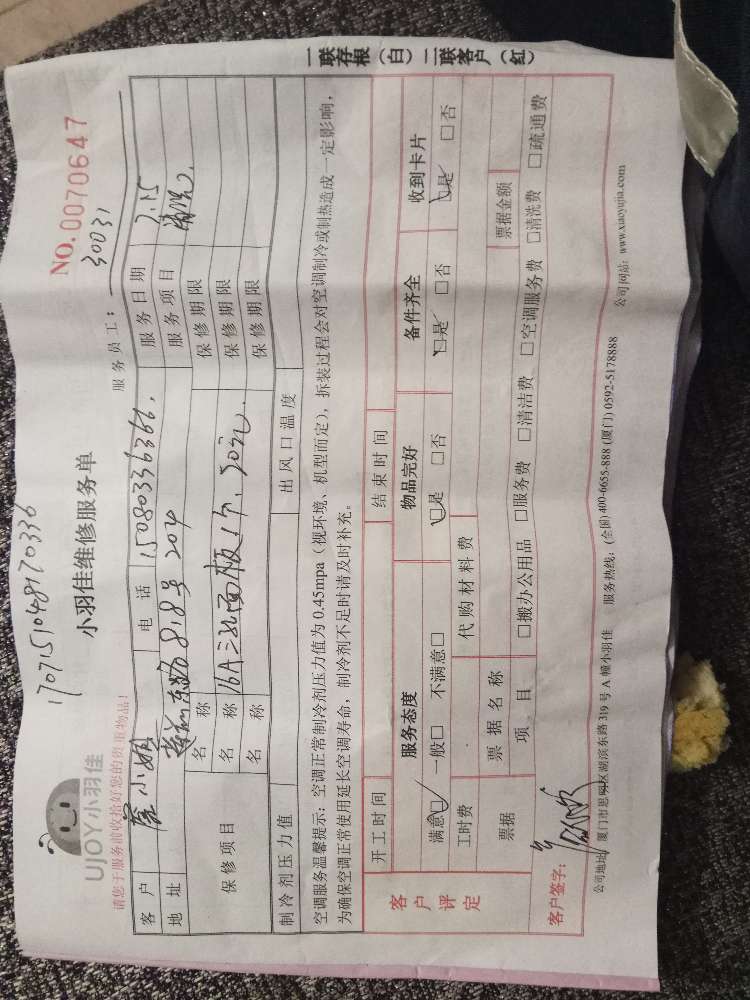 一联存根（白）二联客户（红）
NO.0070647
1707151048170336
UJOY小羽佳
小羽佳维修服务单
服务员工：30031
请您于服务前收拾好您的贵重物品！
客户 小姐 电话 15080336366. 服务日期 7.15
地址 路818号204 服务项目
保修项目 名称 16A三孔面板1个，50元. 保修期限
名称 保修期限
名称 保修期限
制冷剂压力值 出风口温度
空调服务温馨提示：空调正常制冷剂压力值为0.45mpa（视环境、机型而定），拆装过程会对空调制冷或制热造成一定影响，
为确保空调正常使用延长空调寿命，制冷剂不足时请及时补充。
客户评定 开工时间 结束时间
服务态度 物品完好 备件齐全 收到卡片
满意□ 一般□ 不满意□ □是 □否 □是 □否 □是 □否
工时费 代购材料费
票据 票据名称 票据金额
项目 □搬办公用品 □服务费 □清洁费 □空调服务费 □清洗费 □疏通费
客户签字：
公司地址：厦门市思明区湖滨东路319号A幢小羽佳 服务热线：(全国) 400-6655-888 (厦门) 0592-5178888 公司网站：www.xiaoyujia.com